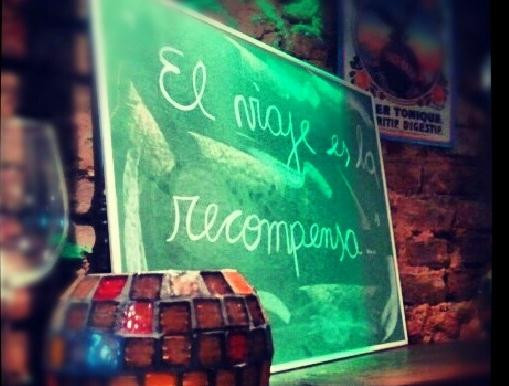 El viaje es la
recompensa...
TONIQUE
DIGESTIF